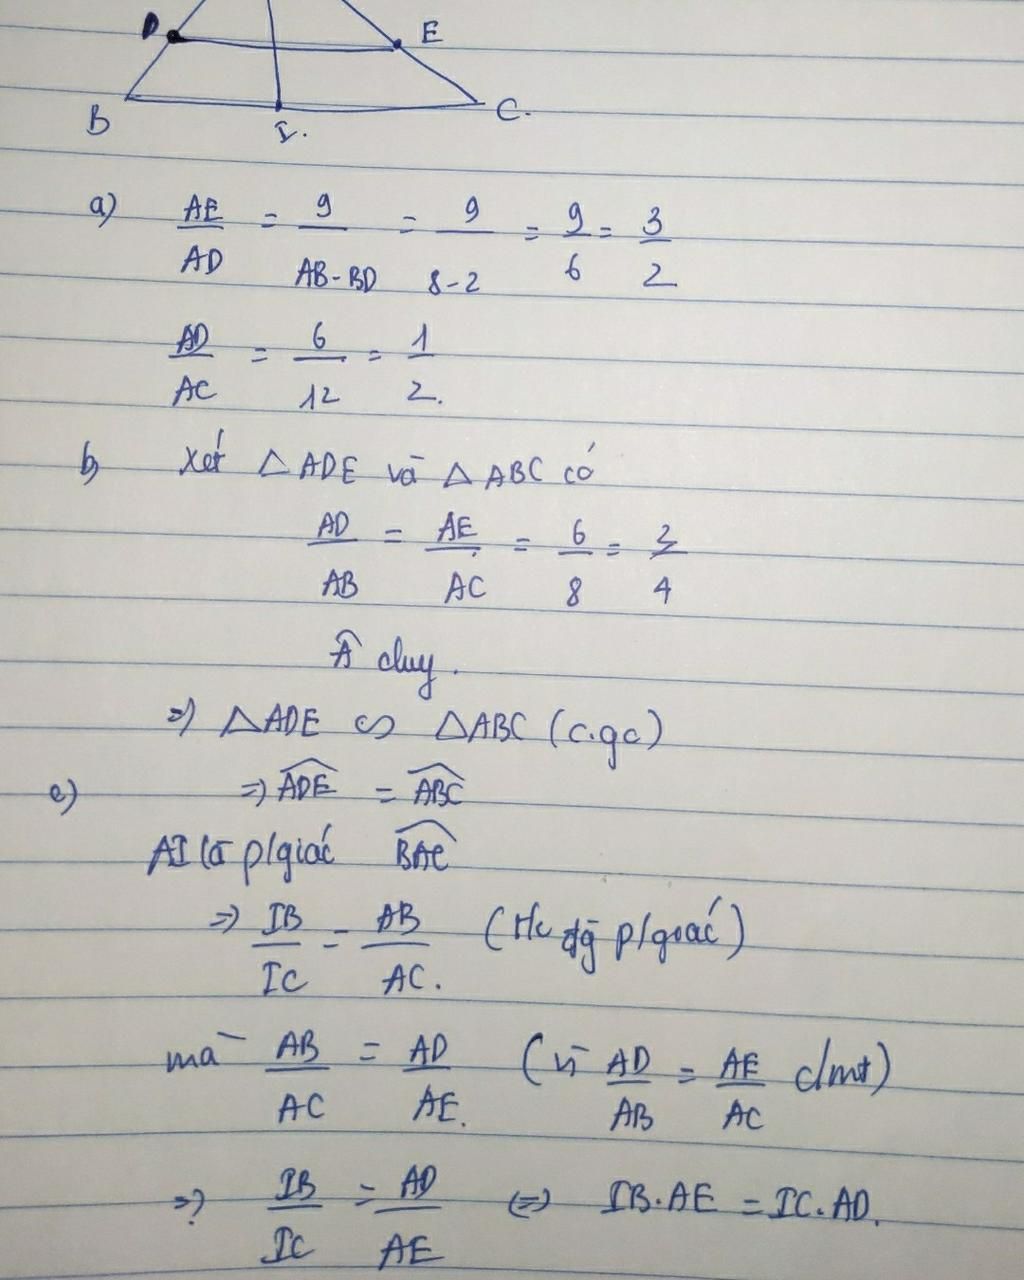 D E
B I. C.
a) AE/AD = 9/(AB-BD) = 9/(8-2) = 9/6 = 3/2
AD/AC = 6/12 = 1/2.
b) Xét △ADE và △ABC có
AD/AB = AE/AC = 6/8 = 3/4
Â chung.
=> △ADE ∽ △ABC (c.g.c)
c) => ADE = ABC
AI là p/giác BAC
=> IB/IC = AB/AC. (t/c đg p/giác)
mà AB/AC = AD/AE. (vì AD/AB = AE/AC cmt)
=> IB/IC = AD/AE <=> IB.AE = IC.AD.